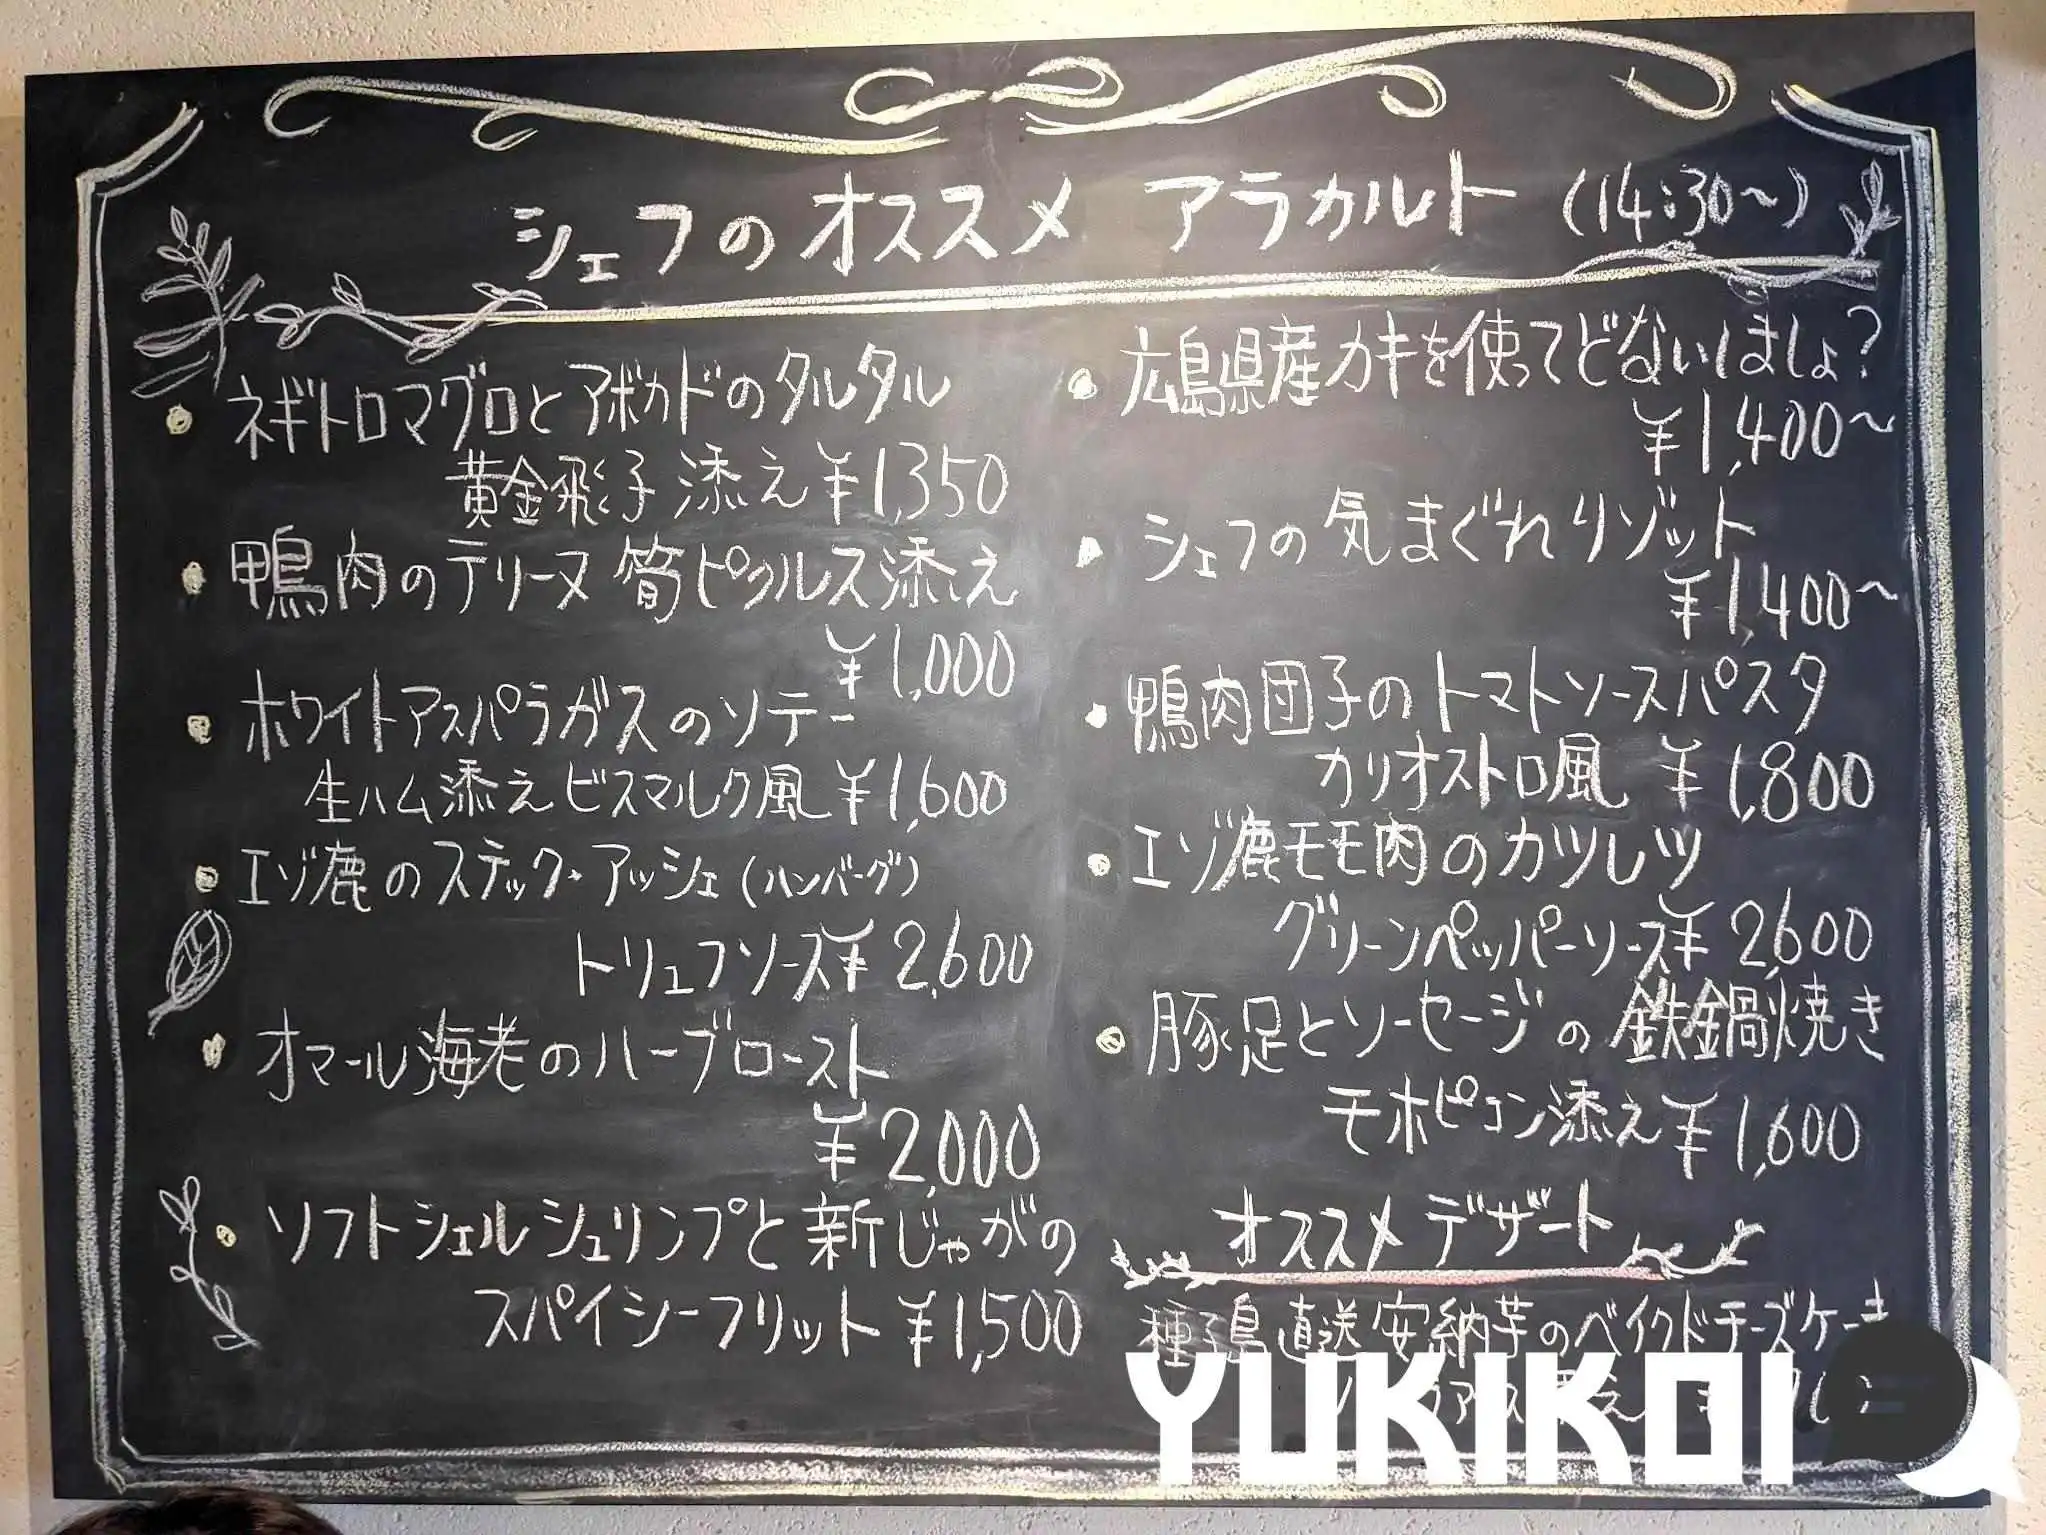 シェフのオススメ アラカルト (14:30〜)
・ネギトロマグロとアボカドのタルタル
黄金飛子 添え ¥1,350
・鴨肉のテリーヌ 筍ピクルス添え
¥1,000
・ホワイトアスパラガスのソテー
生ハム添え ビスマルク風 ¥1,600
・エゾ鹿のステック・アッシェ (ハンバーグ)
トリュフソース ¥2,600
・オマール海老のハーブロースト
¥2,000
・ソフトシェルシュリンプと新じゃがの
スパイシーフリット ¥1,500
・広島県産カキを使ってどないしましょ?
¥1,400〜
・シェフの気まぐれリゾット
¥1,400〜
・鴨肉団子のトマトソースパスタ
カリオストロ風 ¥1,800
・エゾ鹿モモ肉のカツレツ
グリーンペッパーソース ¥2,600
・豚足とソーセージの鉄鍋焼き
モホピコン添え ¥1,600
オススメデザート
種子島直送安納芋のベイクドチーズケーキ
YUKIKOI